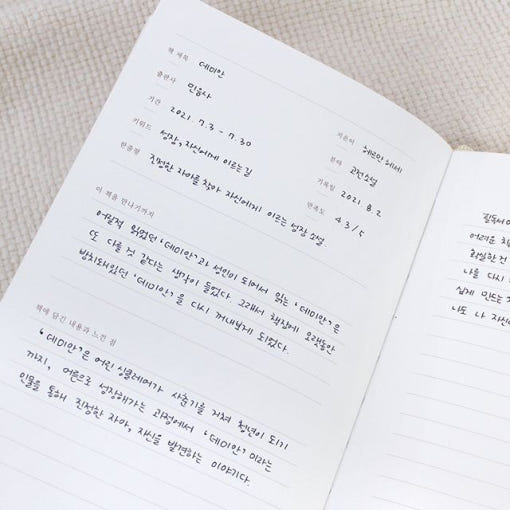 책 제목 데미안
지은이 헤르만 헤세
출판사 민음사
분야 고전소설
기간 2021. 7. 3 - 7. 30
기록일 2021. 8. 2
키워드 성장, 자신에게 이르는 길
만족도 4.3 / 5
한줄평 진정한 자아를 찾아 자신에게 이르는 성장 소설
이 책을 만나기까지
어릴적 읽었던 '데미안'과 성인이 되어서 읽는 '데미안'은
또 다를 것 같다는 생각이 들었다. 그래서 책장에 오랫동안
방치돼있던 '데미안'을 다시 꺼내보게 되었다.
책에 담긴 내용과 느낀 점
'데미안'은 어린 싱클레어가 사춘기를 거쳐 청년이 되기
까지, 어른으로 성장해가는 과정에서 '데미안'이라는
인물을 통해 진정한 자아, 자신을 발견하는 이야기다.
필독서
어려운
확실한 건
나를 다시
쉽게 만드는
너도 나 자신